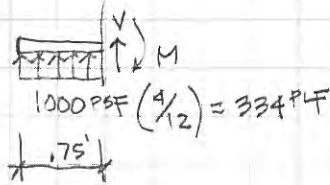 V
M
1000 PSF (4/12) = 334 PLF
.75'